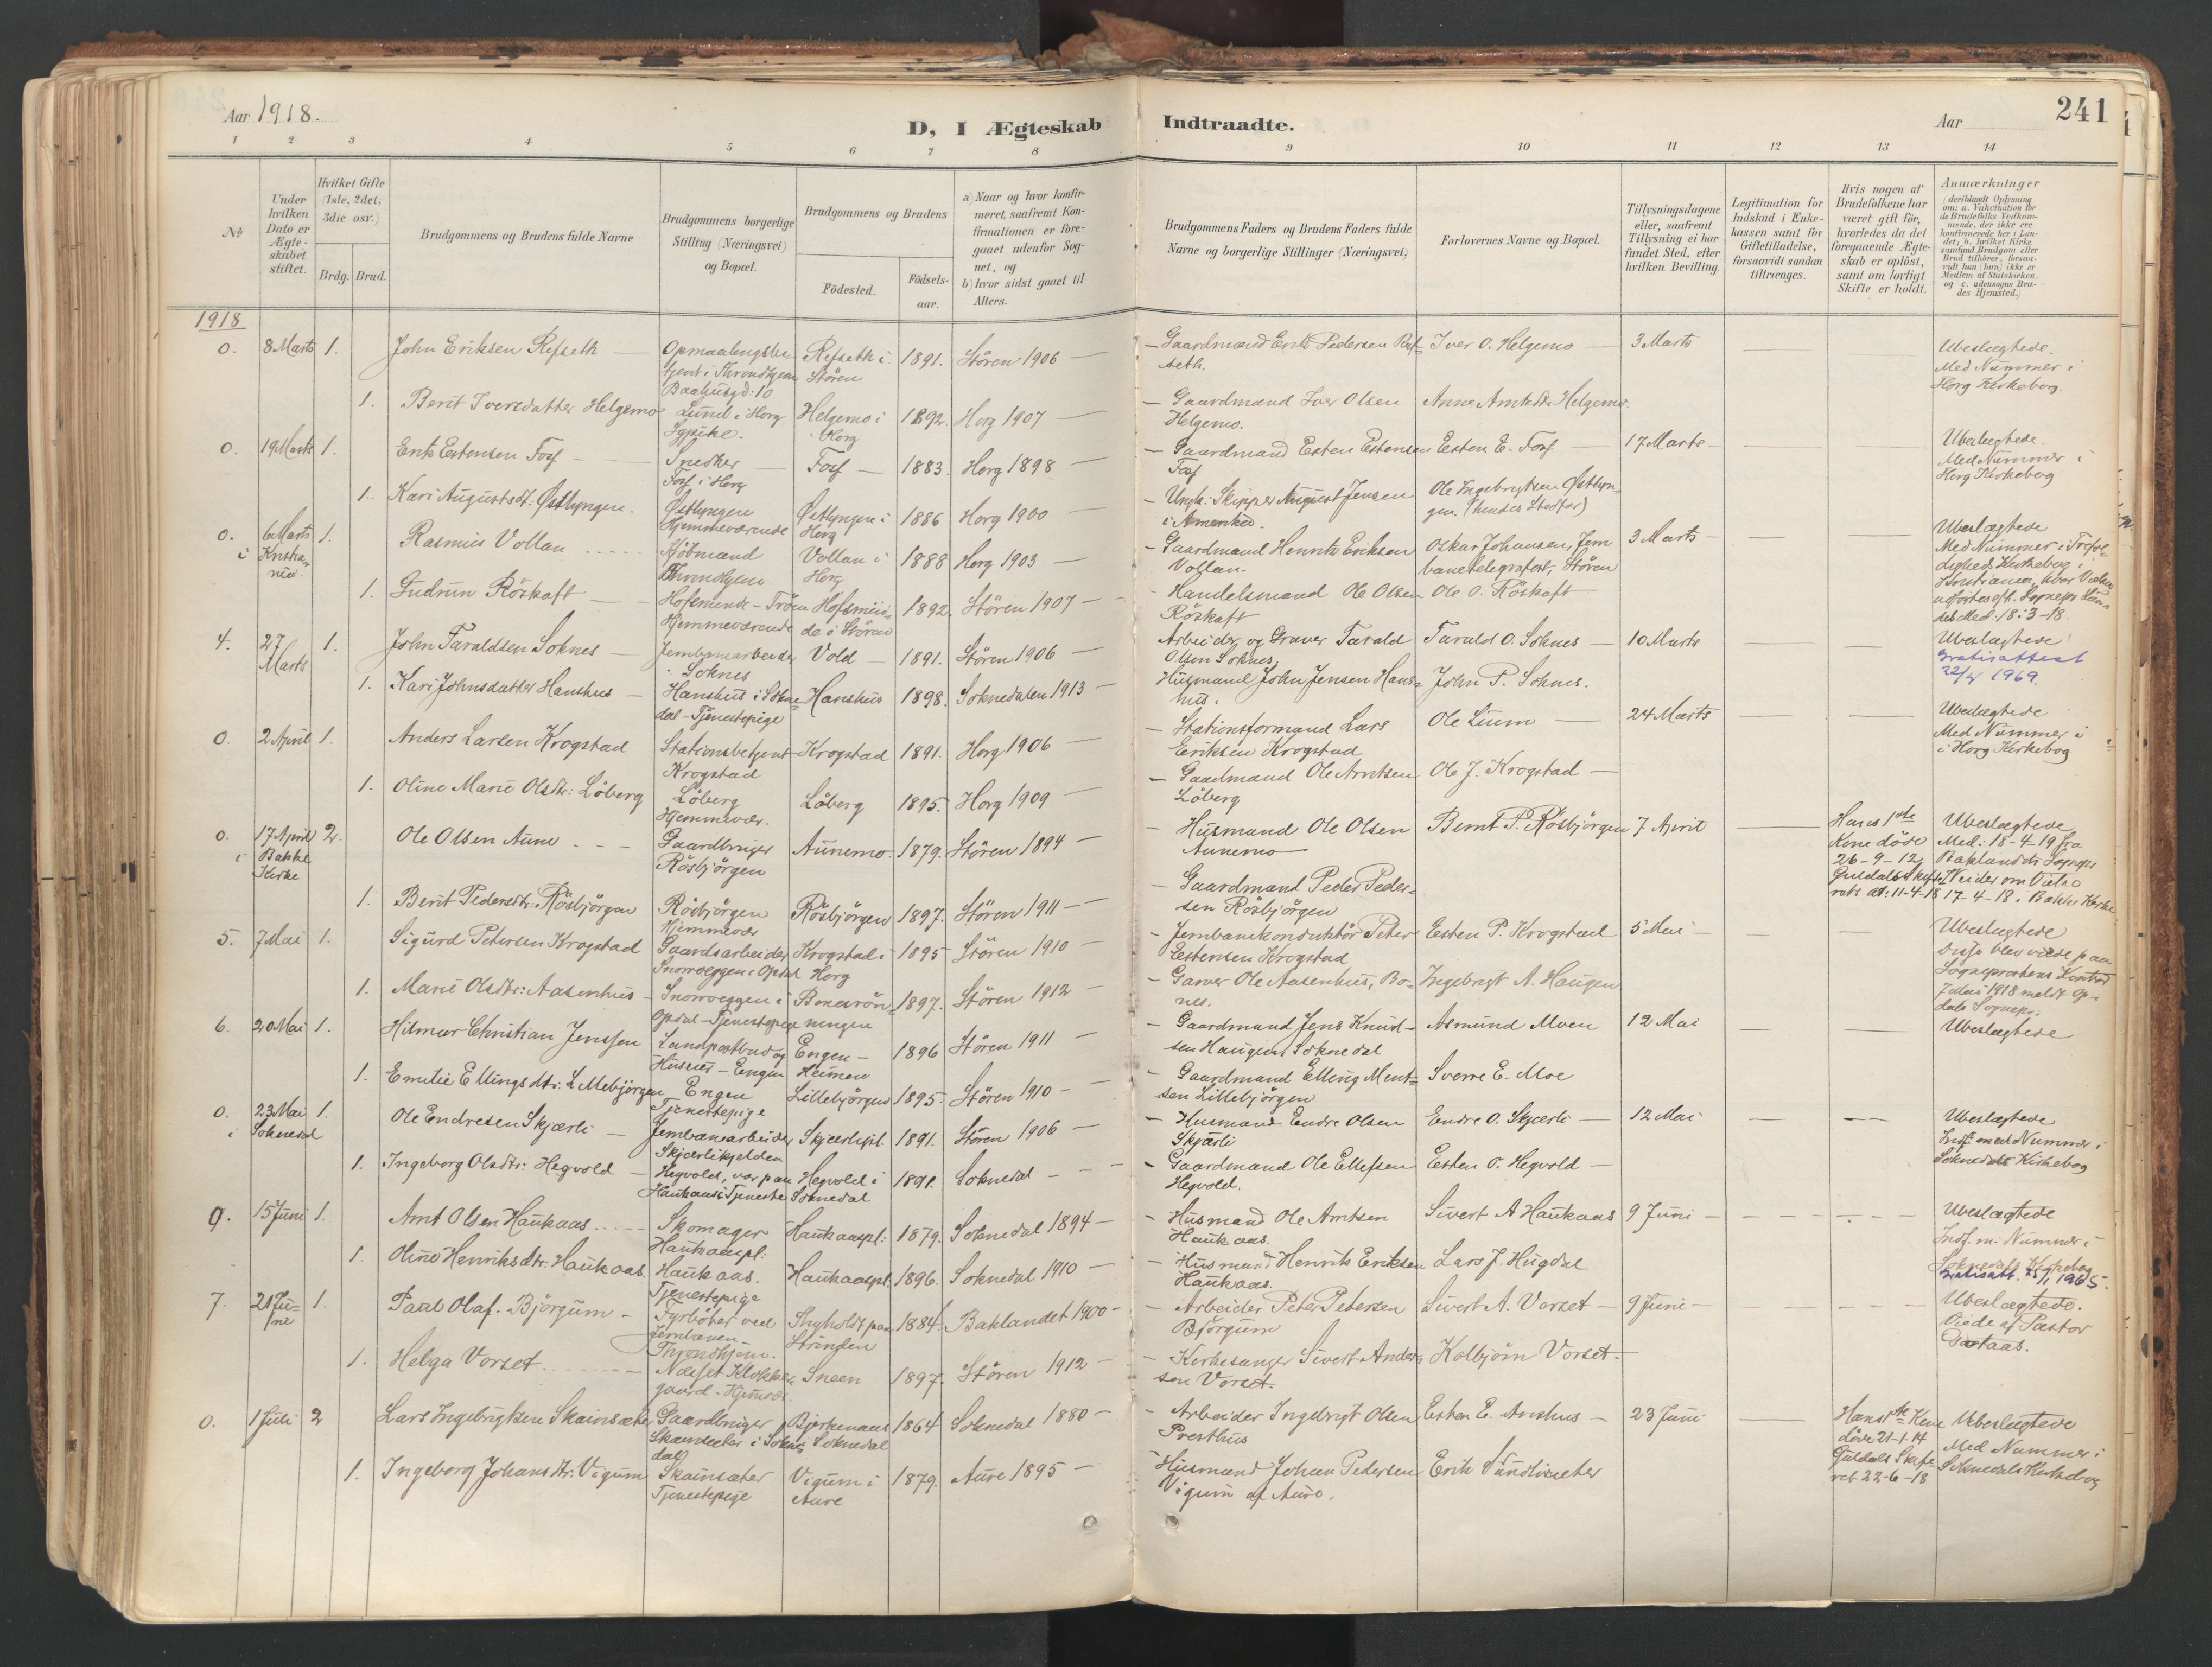 Aar 1918.
D, I Ægteskab
Indtraadte.
Aar
241
1 2 3 4 5 6 7 8 9 10 11 12 13 14
№
Under
hvilken
Dato er
Ægte-
skabet
stiftet.
Hvilket Gifte
(1ste, 2det,
3die osv.)
Brdg. Brud.
Brudgommens og Brudens fulde Navne
Brudgommens borgerlige
Stilling (Næringsvei)
og Bopæl.
Brudgommens og Brudens
Födested.
Födsels-
aar.
a) Naar og hvor konfir-
meret, saafremt Kon-
firmationen er fore-
gaaet udenfor Sog-
net, og
b) hvor sidst gaaet til
Alters.
Brudgommens Faders og Brudens Faders fulde
Navne og borgerlige Stillinger (Næringsvei)
Forlovernes Navne og Bopæl.
Tillysningsdagene
eller, saafremt
Tillysning ei har
fundet Sted, efter
hvilken Bevilling.
Legitimation for
Indskud i Enke-
kassen samt for
Giftetilladelse,
forsaavidt saadan
tiltrænges.
Hvis nogen af
Brudefolkene har
været gift før,
hvorledes da det
foregaaende Ægte-
skab er oplöst,
samt om lovligt
Skifte er holdt.
Anmærkninger
(deriblandt Oplysning
om: a. Vakcination for
de Brudefolks Vedkom-
mende, der ikke ere
konfirmerede her i Lan-
det; b. hvilket Kirke
samfund Brudgom eller
Brud tilhörer, forsaa-
vidt han (hun) ikke er
Medlem af Statskirken.
og c. udensogns Bru-
des Hjemsted.)
1918
0. 8 Marts 1. John Eriksen Refseth
Opmaalingsbe-
tjent i Throndhjem
Baahusgd: 10
Refseth i
Stören
1891. Stören 1906 —
— Gaardmand Erik Pedersen Ref-
seth.
Iver O. Helgemo — 3 Marts
Ubeslægtede.
Med Nummer i
Horg Kirkebog.
1. Berit Iversdatter Helgemo
Lund i Horg
Sypike.
Helgemo i
Horg
1892. Horg 1907 —
— Gaardmand Iver Olsen
Helgemo.
Anne Arntsdtr. Helgemo.
0. 19 Marts 1. Erik Estensen Fosf —
Snedker
Fosf i Horg
Fosf — 1883. Horg 1898 —
— Gaardmand Esten Estensen
Fosf
Esten E. Fosf — 17 Marts —
Ubeslægtede.
Med Nummer i
Horg Kirkebog
1. Kari Augustsdt. Østlyngen.
Østlyngen
Hjemmeværende
Østlyngen i
Horg
1886 Horg 1900 —
— Ungk. Skipper August Jensen
i Amerika.
Ole Ingebrigtsen Østlyn-
gen. (hendes Stedfar)
0. 6 Marts 1. Rasmus Vollan
i Kristia-
nia
Kjöbmand
Throndhjem
Vollan i
Horg
1888 Horg 1903 —
— Gaardmand Henrik Eriksen
Vollan.
Oskar Johansen, Jern
banetelegrafist, Stören
3 Marts —
Ubeslægtede
Med Nummer i Trefol-
digheds Kirkebog i
Kristiania, hvor Vielse
udfortes eft. Sogneprs
Med. 18-3-18.
1. Gudrun Röskaft —
Hofsmunde - Tröen
Hjemmeværende
Hofsmun-
de i Stören
1892. Stören 1907 —
- Handelsmand Ole Olsen
Röskaft
Ole O. Röskaft
4. 27
Marts
1. John Taraldsen Soknes —
Jernbanearbeider
Soknes
Vold — 1891. Stören 1906 —
Arbeider og Graver Tarald
Olsen Soknes.
Tarald O. Soknes — 10 Marts
Ubeslægtede
Gratisattest
22/4 1969.
1. Kari Johnsdatter Hanshus —
Hanshus i Sokne-
dal - Tjenestepige
Hanshus 1898. Soknedalen 1913 —
Husmand John Jensen Hans-
hus.
John P. Soknes.
0. 2 April 1. Anders Larsen Krogstad
Stationsbetjent
Krogstad
Krogstad 1891. Horg 1906 —
— Stationsformand Lars
Eriksen Krogstad
Ole Lium — 24 Marts
Ubeslægtede
Med Nummer i
i Horg Kirkebog
1. Oline Marie Olsdtr: Löberg
Löberg
Hjemmevær.
Löberg 1895. Horg 1909 —
— Gaardmand Ole Arntsen
Löberg
Ole J. Krogstad —
0. 17 April 2. Ole Olsen Aune
i Bakke
Kirke
Gaardbruger
Rösbjörgen
Aunemo. 1879. Stören 1894 —
- Husmand Ole Olsen
Aunemo
Bernt P. Rösbjörgen 7 April
Hans 1ste
Kone döde
26-9-12
Guldals Skifte-
rets at: 11-4-18
Ubeslægtede
Med: 18-4-19 fra
Baklandets Sognepr
Neider om Vielse
17-4-18. Bakke Kirke
1. Berit Pedersdtr: Rösbjörgen
Rösbjörgen
Hjemmevær
Rösbjörgen 1897. Stören 1911 —
— Gaardmand Peder Peder-
sen Rösbjörgen
5. 7 Mai 1. Sigurd Petersen Krogstad
Gaardsarbeider
Snorroeggen i Opdal
Krogstad i
Horg
1895 Stören 1910 —
- Jernbanekonduktör Peter
Estensen Krogstad
Esten P. Krogstad 5 Mai —
Ubeslægtede
Disse blev viede paa
Sogneprestens Kontor
7 Mai 1918 meldt Op-
dals Sognepr.
1. Marie Olsdtr: Aasenhus —
Snorroeggen i
Opdal - Tjenestepige
Bonesrön-
ningen
1897. Stören 1912 —
- Garver Ole Aasenhus, Bo-
nes.
Ingebrigt A. Haugen
6. 20 Mai 1. Hilmar Christian Jenssen
Landpostbud og
Huseier - Engen
Engen —
Heimen
1896 Stören 1911 —
- Gaardmand Jens Knud-
sen Haugen, Soknedal
Asmund Moen 12 Mai
Ubeslægtede
1. Emilie Ellingsdtr: Lillebjörgen
Engen
Tjenestepige
Lillebjörgen 1895. Stören 1910 —
- Gaardmand Elling Ment-
sen Lillebjörgen
Sverre E. Moe
0. 23 Mai 1. Ole Endresen Skjærli —
i Soknedal
Jernbanearbeider
Skjærlikjelden
Skjærlipl. 1891. Stören 1906 —
- Husmand Endre Olsen
Skjærli
Endre O. Skjærli — 12 Mai
Ubeslægtede
Indf. med Nummer i
Soknedals Kirkebog
1. Ingeborg Olsdtr: Hegvold —
Hegvold, var paa
Haukaas i Tjeneste
Hegvold i
Soknedal
1891. Soknedal —
- Gaardmand Ole Ellefsen
Hegvold.
Esten O. Hegvold —
9. 15 Juni 1. Arnt Olsen Haukaas
Skomager
Haukaaspl:
Haukaaspl: 1879. Soknedal 1894 —
- Husmand Ole Arntsen
Haukaas.
Sivert A Haukaas 9 Juni —
Ubeslægtede
Indf. m. Nummer i
Soknedals Kirkebog
Gratisatt. 25/1 1965.
1. Oline Henriksdtr. Haukaas.
Haukaas.
Tjenestepige
Haukaaspl. 1896. Soknedal 1910 —
- Husmand Henrik Eriksen
Haukaas.
Lars J. Hugdal
7. 21 Ju-
ne
1. Paal Olaf. Björgum —
Fyrböter ved
Jernbanen —
Throndhjem.
Thyholdt paa
Strinden
1884. Baklandet 1900 —
- Arbeider Peter Petersen
Björgum
Sivert A. Vorset — 9 Juni —
Ubeslægtede.
Viede af Pastor
Dastaas.
1. Helga Vorset
gaard - Hjemvær.
Sneen 1897. Stören 1912 —
- Kirkesanger Sivert Anders-
sen Vorset.
Kolbjörn Vorset.
0. 1 Juli 2 Lars Ingebrigtsen Skainsæter
Gaardbruger
Skainsæter i Sokne-
dal
Bjerkenaas
Soknedal
1864 Soknedal 1880 —
- Arbeider Ingebrigt Olsen
Presthus
Esten E. Arvshus — 23 Juni
Hans 1ste Kone
döde 21-1-14
Guldals Skifte-
ret 22-6-18
Ubeslægtede
Med Nummer i
Soknedals Kirkebog
1. Ingeborg Johansdtr: Vigum
Skainsæter
Tjenestepige
Vigum i
Aure
1879. Aure 1895 —
- Husmand Johan Pedersen
Vigum af Aure.
Erik Sundliseter